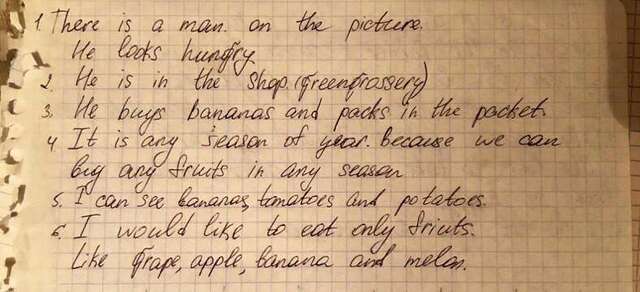 1. There is a man. on the picture.
He looks hungry.
2. He is in the shop. (greengrassery)
3. He buys bananas and packs in the packet.
4 It is any season of year. because we can
buy any fruits in any season
5. I can see bananas, tomatoes and potatoes.
6. I would like to eat only friuts.
Like grape, apple, banana and melon.